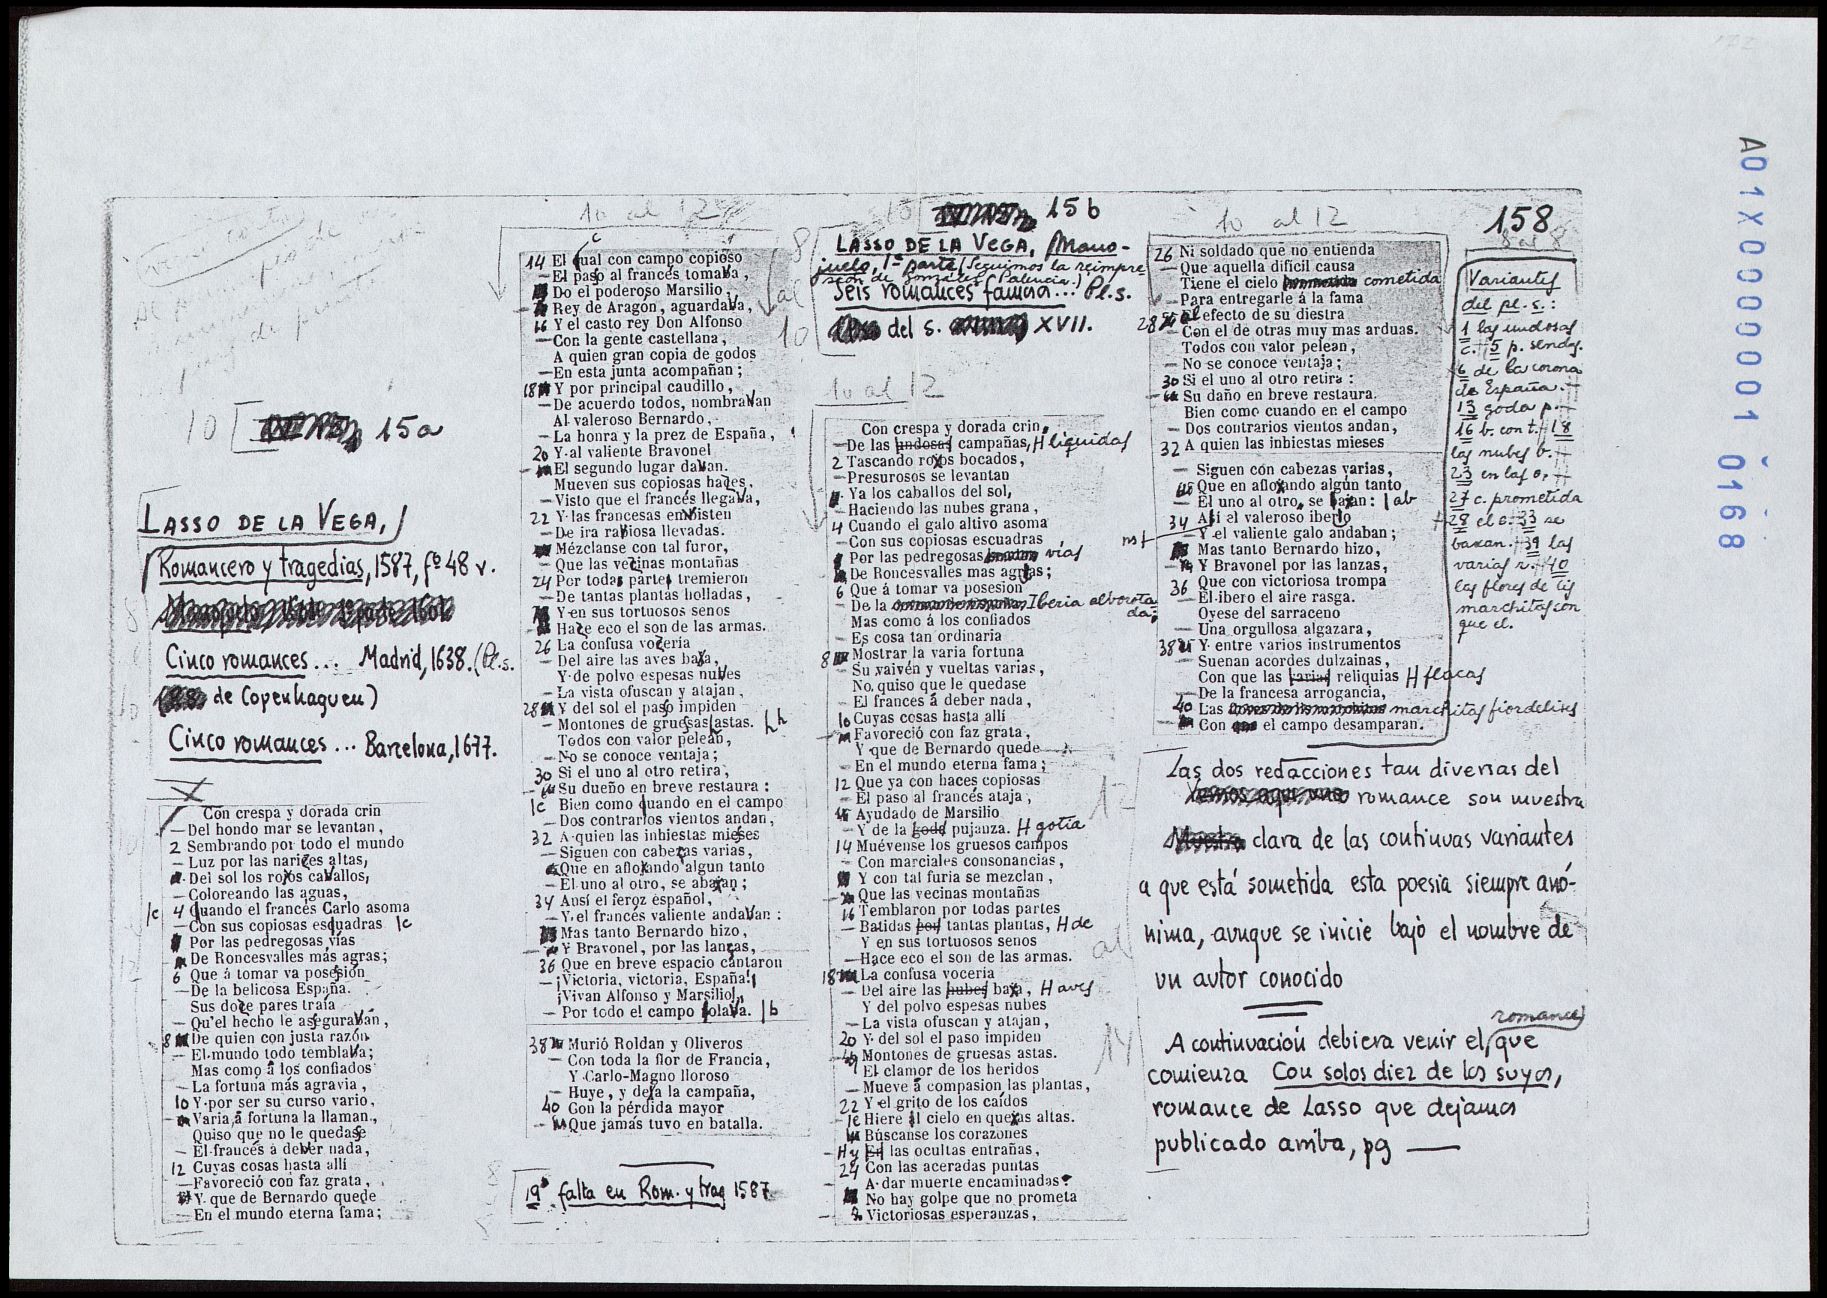 A01X0000001 0168
15a
LASSO DE LA VEGA,
Romancero y tragedias, 1587, fº 48 v.
Cinco romances... Madrid, 1638. (Pl.s.
de Copenhaguen)
Cinco romances... Barcelona, 1677.
Con crespa y dorada crin
Del hondo mar se levantan,
2 Sembrando por todo el mundo
Luz por las narizes altas,
Del sol los roxos cavallos,
Coloreando las aguas,
4 Cuando el francés Carlo asoma
Con sus copiosas escuadras
Por las pedregosas vías
De Roncesvalles más agras;
6 Que á tomar va posesión
De la belicosa España.
Sus doze pares traía
Qu'el hecho le aseguravan,
8 De quien con justa razón
El mundo todo temblava;
Mas como á los confiados
La fortuna más agravia,
10 Y por ser su curso vario,
Varia á fortuna la llaman,
Quiso que no le quedase
El francés á dever nada,
12 Cuyas cosas hasta allí
Favoreció con faz grata,
Y que de Bernardo quede
En el mundo eterna fama;
10 al 12
14 El cual con campo copioso
El paso al francés tomava,
Do el poderoso Marsilio,
Rey de Aragón, aguardava,
16 Y el casto rey Don Alfonso
Con la gente castellana,
A quien gran copia de godos
En esta junta acompañan;
18 Y por principal caudillo,
De acuerdo todos, nombravan
Al valeroso Bernardo,
La honra y la prez de España,
20 Y al valiente Bravonel
El segundo lugar davan.
Mueven sus copiosas hazes,
Visto que el francés llegava,
22 Y las francesas envisten
De ira raviosa llevadas.
Mézclanse con tal furor,
Que las vezinas montañas
24 Por todas partes tremieron
De tantas plantas holladas,
Y en sus tortuosos senos
Haze eco el son de las armas.
26 La confusa vozeria
Del aire las aves baxa,
Y de polvo espesas nuves
La vista ofuscan y atajan,
28 Y del sol el paso impiden
Montones de gruesas hastas.
Todos con valor pelean,
No se conoce ventaja;
30 Si el uno al otro retira,
Su dueño en breve restaura:
Bien como cuando en el campo
Dos contrarios vientos andan,
32 A quien las inhiestas mieses
Siguen con cabezas varias,
Que en afloxando algun tanto
El uno al otro, se abaxan;
34 Ansí el feroz español,
Y el francés valiente andavan:
Mas tanto Bernardo hizo,
Y Bravonel, por las lanças,
36 Que en breve espacio cantaron
¡Victoria, victoria, España!
¡Vivan Alfonso y Marsilio!,
Por todo el campo bolava.
38 Murió Roldan y Oliveros
Con toda la flor de Francia,
Y Carlo-Magno lloroso
Huye, y dexa la campaña,
40 Con la pérdida mayor
Que jamás tuvo en batalla.
19b falta en Rom. y trag 1587
15b
LASSO DE LA VEGA, Mano-
juelo, 1ª parte (Seguimos la reimpre
sión de González Palencia.)
Seis romances famosos... Pl.s.
del s. XVII.
10 al 12
Con crespa y dorada crin
De las undosas campañas, H líquidas
2 Tascando roxos bocados,
Presurosos se levantan
Ya los caballos del sol,
Haciendo las nubes grana,
4 Cuando el galo altivo asoma
Con sus copiosas escuadras
Por las pedregosas vías
De Roncesvalles mas agrias;
6 Que á tomar va posesión
De la Iberia alborota-
da;
Mas como á los confiados
Es cosa tan ordinaria
8 Mostrar la varia fortuna
Su vaivén y vueltas varias,
No quiso que le quedase
El frances á deber nada,
10 Cuyas cosas hasta allí
Favoreció con faz grata,
Y que de Bernardo quede
En el mundo eterna fama;
12 Que ya con haces copiosas
El paso al francés ataja,
Ayudado de Marsilio
Y de la goda pujanza. H gotia
14 Muévense los gruesos campos
Con marciales consonancias,
Y con tal furia se mezclan,
Que las vecinas montañas
16 Temblaron por todas partes
Batidas por tantas plantas, H de
Y en sus tortuosos senos
Hace eco el son de las armas.
18 La confusa vocería
Del aire las nubes baxa, H aves
Y del polvo espesas nubes
La vista ofuscan y atajan,
20 Y del sol el paso impiden
Montones de gruesas astas.
El clamor de los heridos
Mueve á compasion las plantas,
22 Y el grito de los caídos
Hiere al cielo en quexas altas.
Búscanse los corazones
H y En las ocultas entrañas,
24 Con las aceradas puntas
A dar muerte encaminadas.
No hay golpe que no prometa
Victoriosas esperanzas,
158
10 al 12
26 Ni soldado que no entienda
Que aquella dificil causa
Tiene el cielo cometida
Para entregarle á la fama
28 al efecto de su diestra
Con el de otras muy mas arduas.
Todos con valor pelean,
No se conoce ventaja;
30 Si el uno al otro retira:
Su daño en breve restaura.
Bien como cuando en el campo
Dos contrarios vientos andan,
32 A quien las inhiestas mieses
Siguen con cabezas varias,
Que en afloxando algún tanto
El uno al otro, se baxan: ab
34 Así el valeroso iberio
Y el valiente galo andaban;
Mas tanto Bernardo hizo,
Y Bravonel por las lanzas,
36 Que con victoriosa trompa
El ibero el aire rasga.
Oyese del sarraceno
Una orgullosa algazara,
38 Y entre varios instrumentos
Suenan acordes dulzainas,
Con que las varias reliquias H flacas
De la francesa arrogancia,
40 Las marchitas flordelises
Con el campo desamparan.
Variantes
del pl.s.:
1 las undosas
c. 5 p. sendas.
6 de la corona
de España.
13 goda p.
16 b. con t. 18
las nubes b.
23 en las o.
27 c. prometida
28 el e. 33 se
baxan. 39 las
varias r. 40
las flores de lis
marchitas con
que el.
Las dos redacciones tan diversas del
romance son muestra
clara de las continuas variantes
a que está sometida esta poesía siempre anó-
nima, aunque se inicie bajo el nombre de
un autor conocido
A continuación debiera venir el romance que
comienza Con solos diez de los suyos,
romance de Lasso que dejamos
publicado arriba, pg